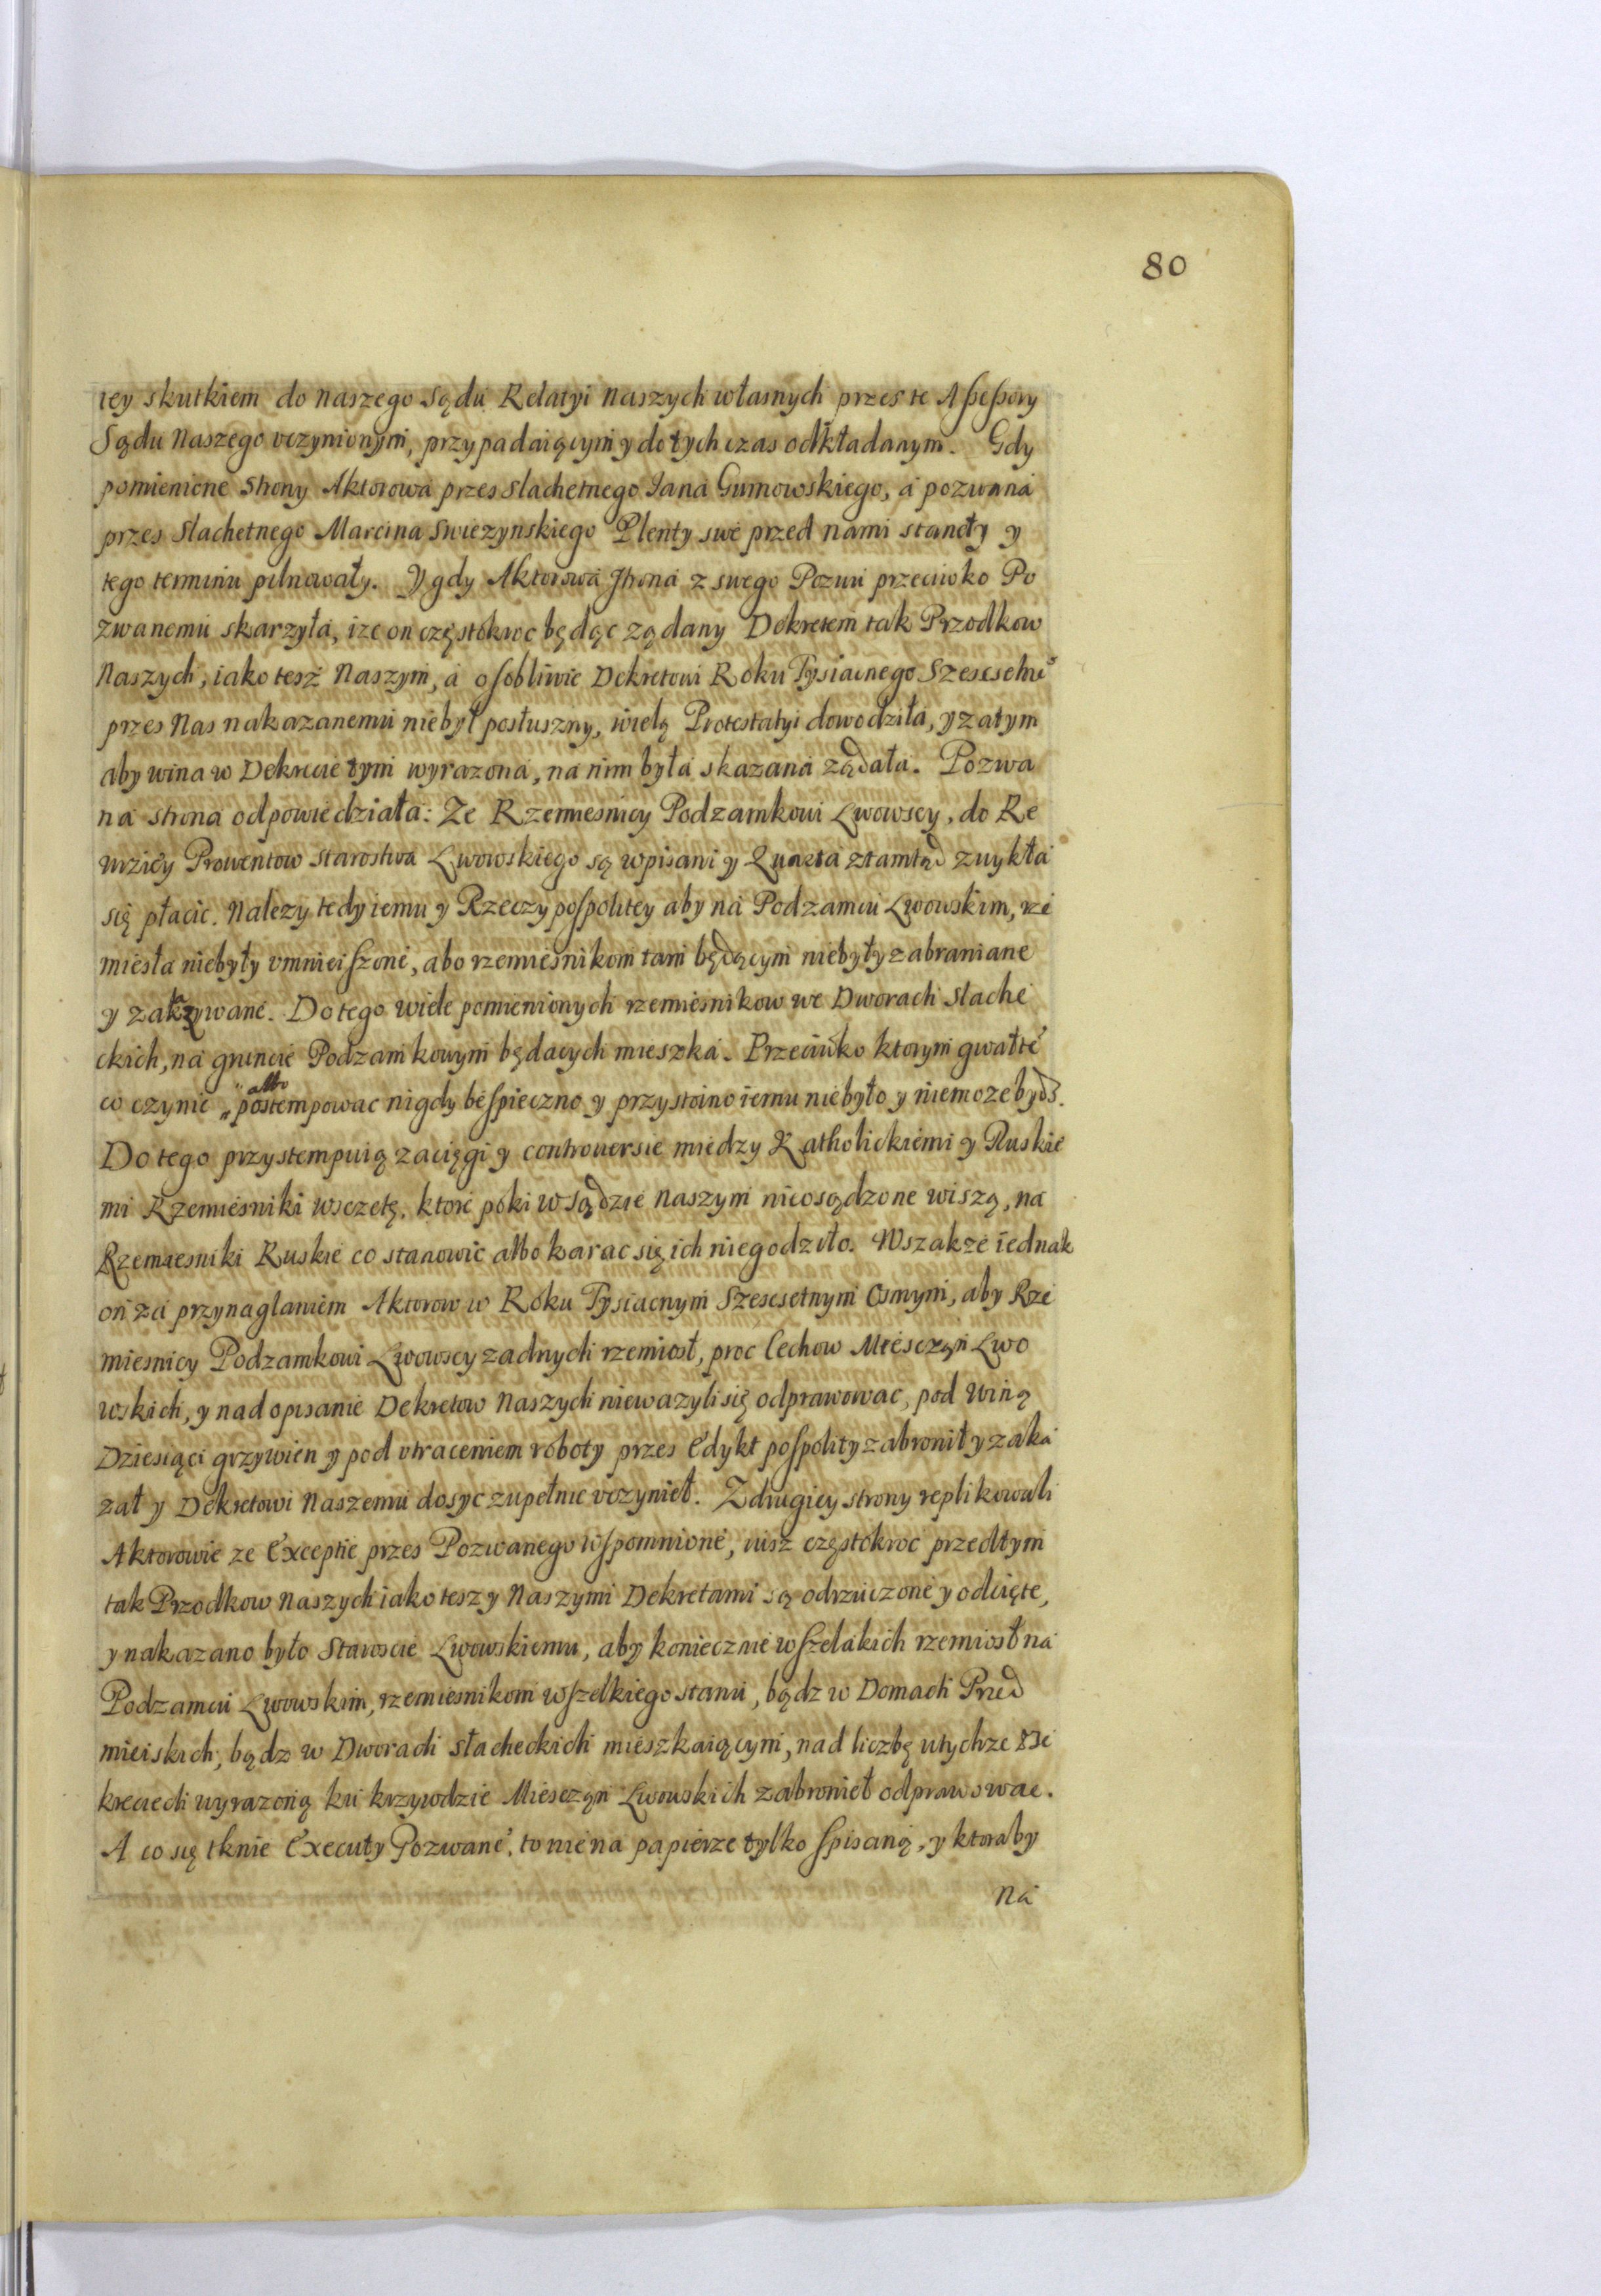 80
tey skutkiem do naszego Sądu Relatyi naszych własnych przes te Assessory
Sądu Naszego vczynionym, przypadaiącym y do tych czas odkładanym. Gdy
pomienione Strony Aktorowa przes Slachetnego Jana Gumowskiego, a pozwana
przes Slachetnego Marcina Swiezynskiego Plenty swe przed nami stanęły y
tego terminu pilnowały. Y gdy Aktorowa Strona z swego Pozwu przeciwko Po
zwanemu skarzyła, ize on częstokroc będąc ządany Dekretem tak Przodkow
Naszych, iako tesz Naszym, a osobliwie Dekretowi Roku Tysiącnego Szescsetnº
przes Nas nakazanemu niebył posłuszny, wielą Protestatyi dowodziła, y zatym
aby wina w Dekrecie tym wyrazona, na nim była skazana ządała. Pozwa
na strona odpowiedziała: Ze Rzemiesnicy Podzamkowi Lwowscy, do Re
wiziey Prowentow Starostwa Lwowskiego są wpisani y Quarta ztamtąd zwykła
się płacic. Nalezy tedy iemu y Rzeczypospolitey aby na Podzamcu Lwowskim, rze
miesła niebyły vmnieiszone, abo rzemiesnikom tam będącym niebyły zabraniane
y zakazywane. Do tego wiele pomienionych rzemiesnikow we Dworach Slache
ckich, na gruncie Podzamkowym będacych mieszka. Przeciwko ktorym gwałte
co czynic albo postempowac nigdy bespieczno y przystoino iemu niebyło y niemoze bydz.
Do tego przystempuią zaciągi y controuersie miedzy Katholickiemi y Ruskie
mi Rzemiesniki wsczetę, ktore poki w Sądzie naszym nieosądzone wiszą, na
Rzemiesniki Ruskie co stanowic albo karac się ich niegodziło. Wszakze iednak
on za przynaglaniem Aktorow w Roku Tysiacnym Szescsetnym Osmym, aby Rze
miesnicy Podzamkowi Lwowscy zadnych rzemiosł, proc Cechow Miesczan Lwo
wskich, y nad opisanie Dekretow Naszych niewazyli się odprawowac, pod winą
Dziesiąci grzywien y pod vtraceniem roboty przes Edykt pospolity zabronił y zaka
zał y Dekretowi Naszemu dosyc zupełnie vczynieł. Z drugiey strony replikowali
Aktorowie ze Exceptie przes Pozwanego wspomnione, iusz częstokroc przedtym
tak Przodkow Naszych iako tesz y Naszymi Dekretami są odrzuczone y odcięte,
y nakazano było Staroscie Lwowskiemu, aby koniecznie wszelakich rzemiosł na
Podzamcu Lwowskim, rzemiesnikom wszelkiego stanu, bądz w Domach Przed
mieiskich, bądz w Dworach słacheckich mieszkaiącym, nad liczbę w tychze De
kreciech wyrazoną ku krzywdzie Miesczan Lwowskich zabronieł odprawowac.
A co się tknie Executy Pozwane, to nie na papierze tylko spisaną, y ktoraby
Na